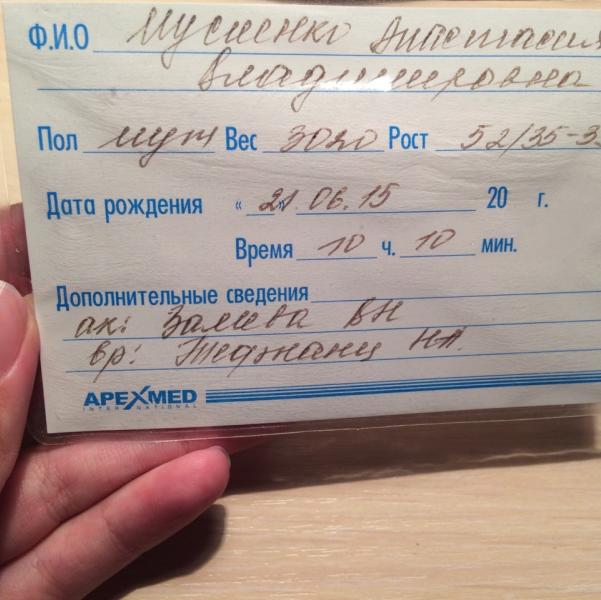 Ф.И.О Мусиенко Анастасия
Владимировна
Пол муж Вес 3020 Рост 52/35-3
Дата рождения « 21 » 06.15 20 г.
Время 10 ч. 10 мин.
Дополнительные сведения
ак: Залева ВН
вр: НА.
APEXMED
INTERNATIONAL